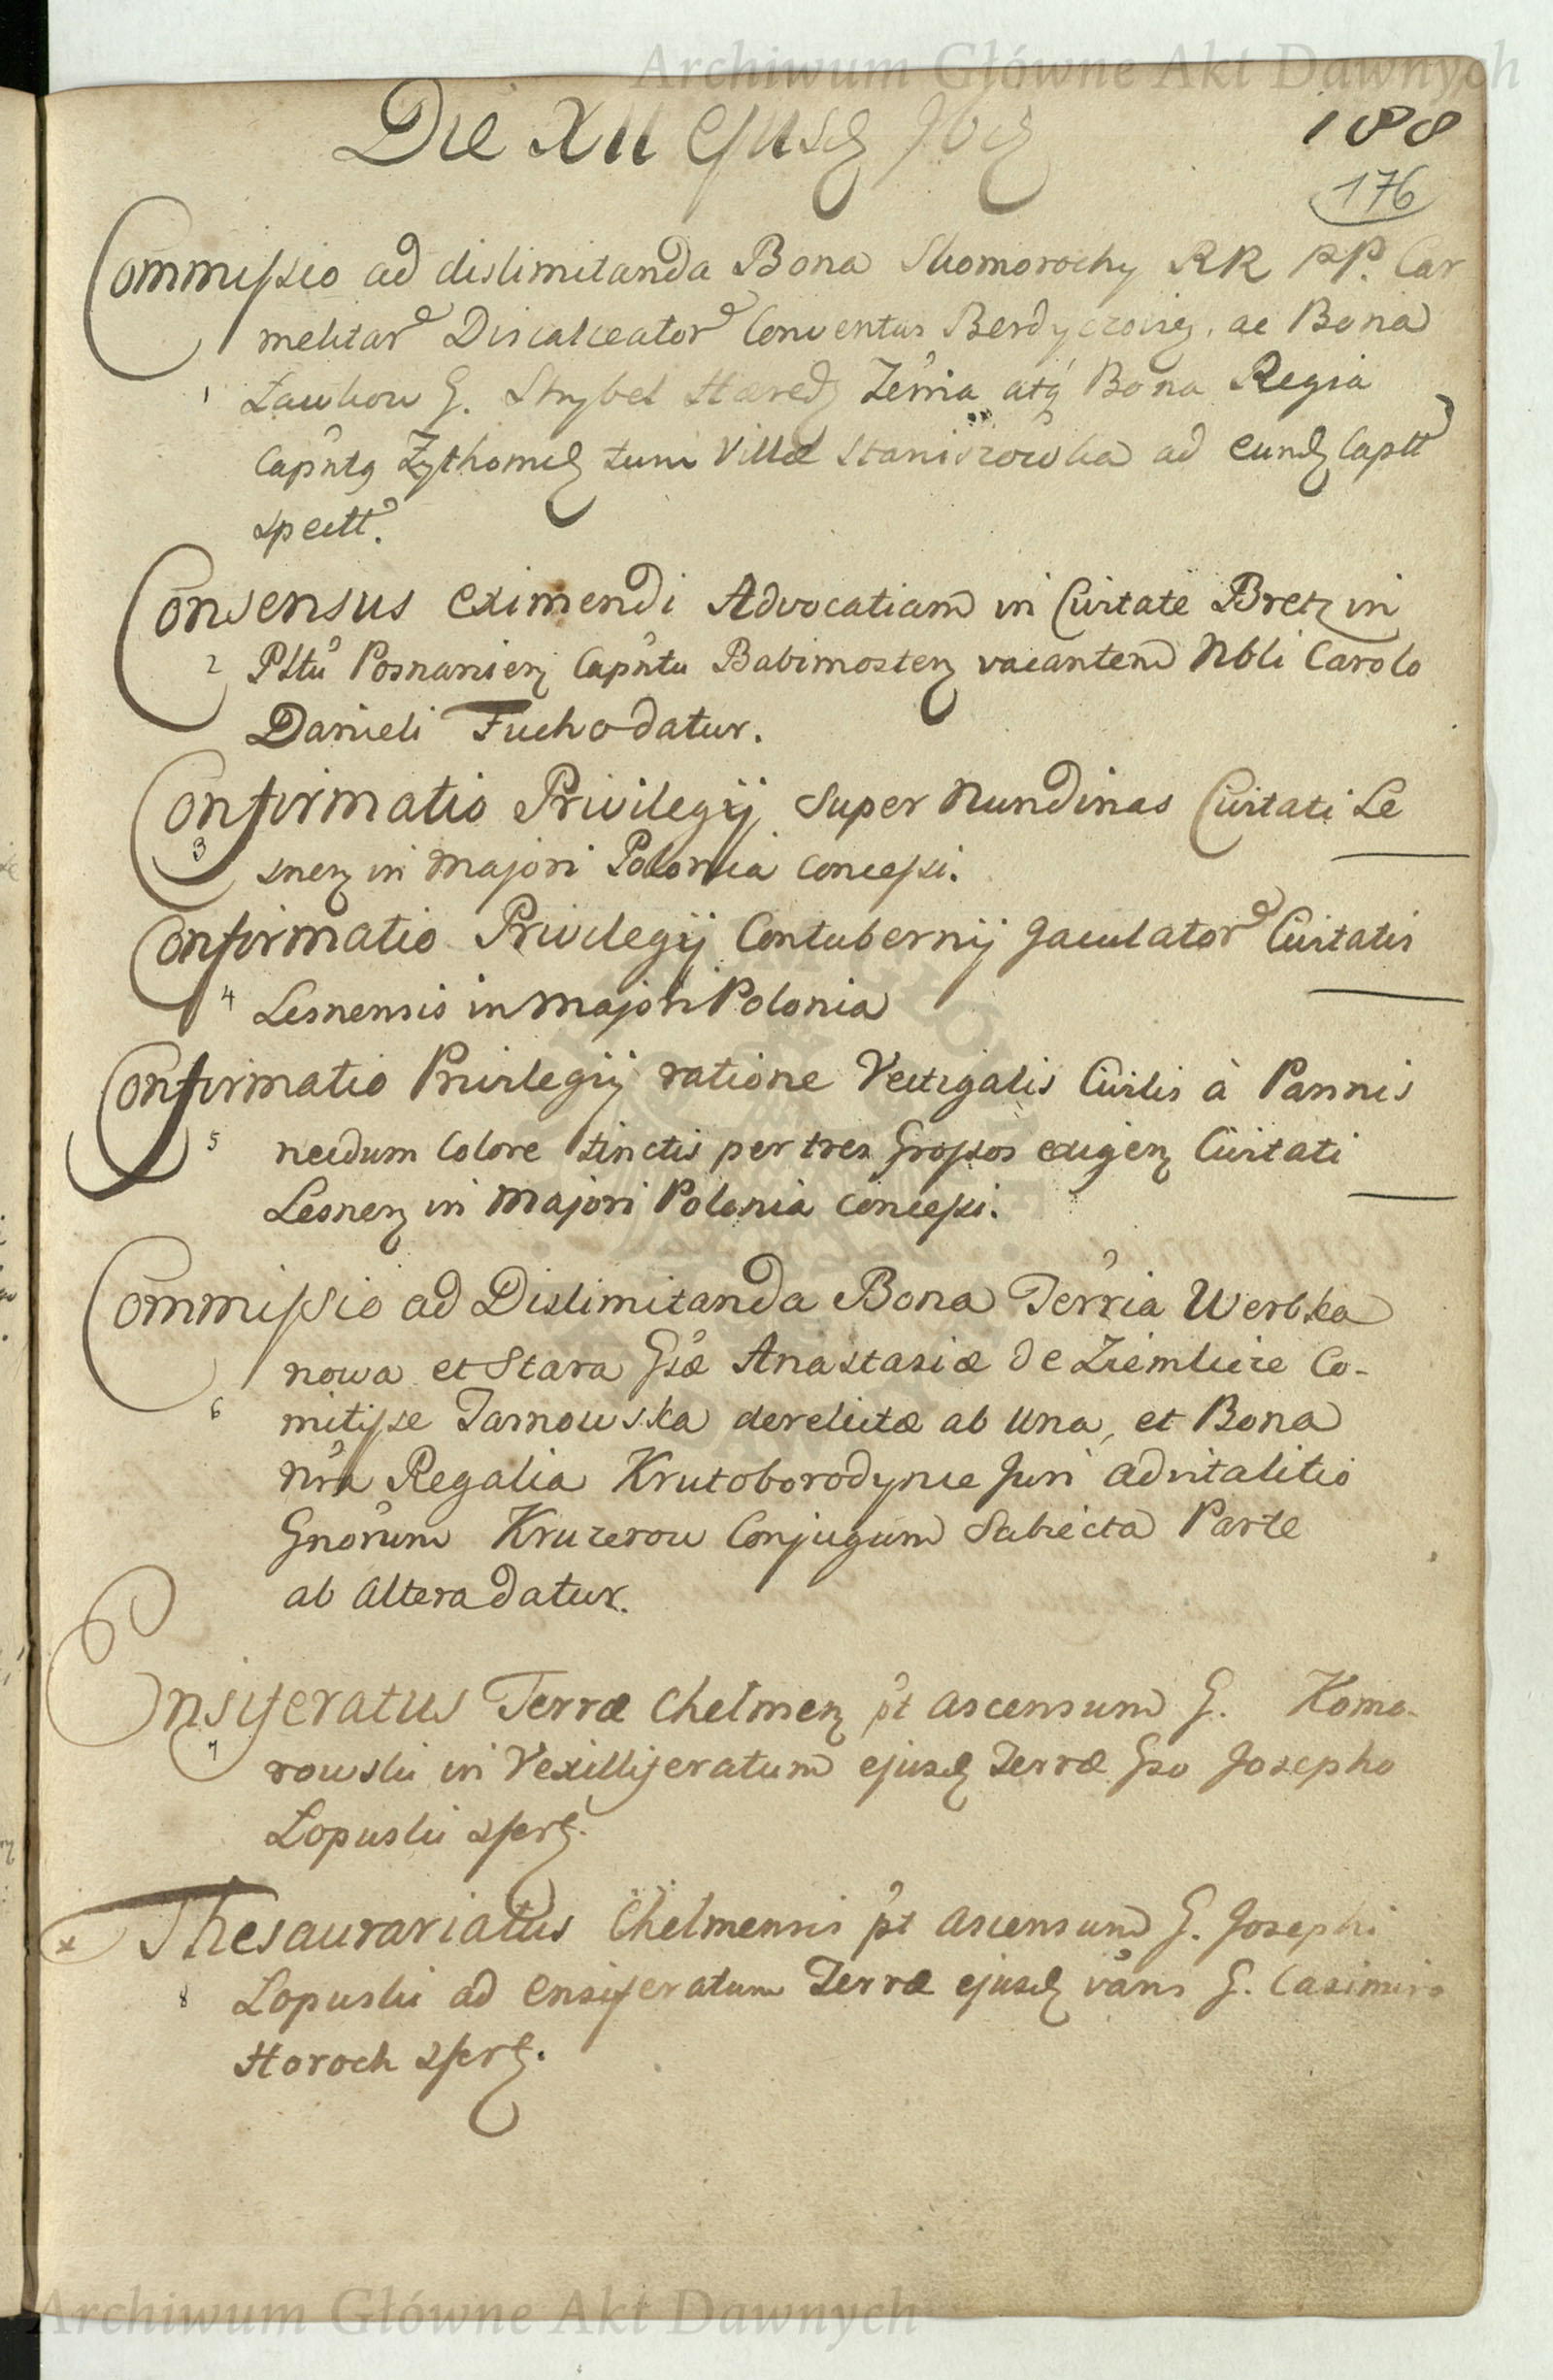 Archiwum Główne Akt Dawnych
Die XII ejusd 9bris
188
176
Commissio ad dislimitanda Bona Skomorochy RR PP. Car
melitar Discalceator Conventus Berdyczovien. ac Bona
Ławkow G. Strybel Hæred Terria atq Bona Regia
1
Capntq Zythomie tum Villæ Staniszowka ad eund Captt
spectt.
Consensus eximendi Advocatiam in Civitate Bretz in
2 Pltu Posnanien Capntu Babimosten vacantem Nbli Carolo
Danieli Fucho datur.
Confirmatio Privilegij super Nundinas Civitati Le
3
snen in Majori Polonia concessi.
Confirmatio Privilegij Contubernij Jaculator Civitatis
4 Lesnensis in Majori Polonia
Confirmatio Privilegij ratione Vectigalis Civilis à Pannis
5 necdum Colore tinctis per tres Grossos exigen Civitati
Lesnen in Majori Polonia concessi.
Commissio ad Dislimitanda Bona Terria Werbka
nowa et Stara Gsæ Anastasiæ de Ziemlice Co-
6 mitisse Tarnowska derelictæ ab una, et Bona
Nra Regalia Krutoborodynce Juri advitalitio
Gnorum Kruzerow Conjugum Subiecta Parte
ab altera datur.
Ensiferatus Terræ Chelmen pt ascensum G. Komo-
7
rowski in Vexilliferatum ejusd Terræ Gso Josepho
Lopuski sfert.
x Thesaurariatus Chelmensis pt ascensum G. Josephi
8 Lopuski ad Ensiferatum Terræ ejusd vans G. Casimiro
Horoch sfert.
Archiwum Główne Akt Dawnych